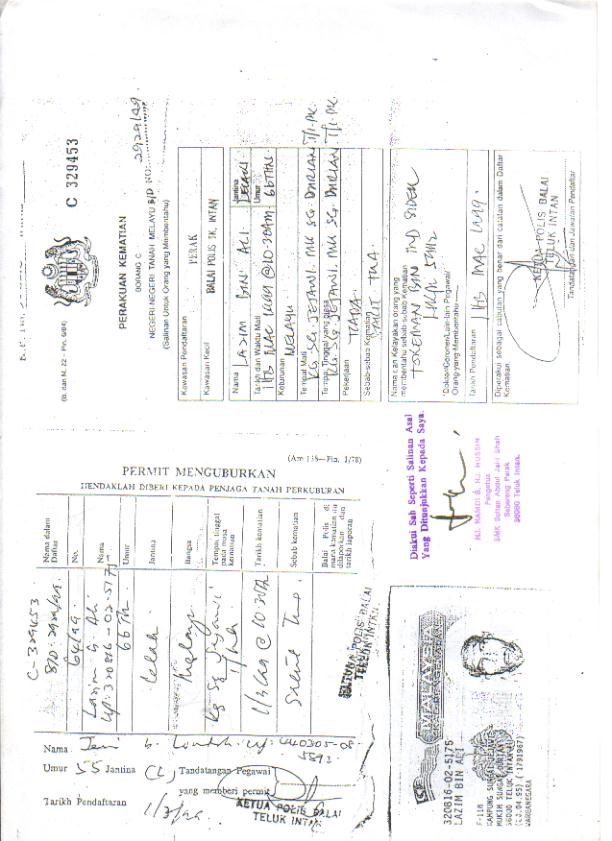 C 329453
(B. dan M. 22 - Pin. 6/84)
PERAKUAN KEMATIAN
BORANG C
NEGERI-NEGERI TANAH MELAYU B/D NO: 2929/99
(Salinan Untuk Orang yang Memberitahu)
Kawasan Pendaftaran PERAK
Kawasan Kecil BALAI POLIS TK. INTAN
Nama LAZIM BIN ALI Jantina LELAKI
Tarikh dan Waktu Mati 1HB MAC 1999 @ 10.30AM Umur 66THN.
Keturunan MELAYU
Tempat Mati KG. SG. JEJAWI. MK SG. DURIAN. T/I. PK.
Tempat Tinggal yang biasa KG. SG. JEJAWI. MK SG. DURIAN T/I. PK.
Pekerjaan TIADA
Sebab-sebab Kematian SAKIT TUA
Nama dan Kelayakan orang yang
membentahu sebab-sebab Kematian
*Doktor/Coroner/Lain-lain Pegawai/
Orang yang Memberitahu
Tarikh Pendaftaran 1HB MAC 1999.
Diperakui sebagai cabutan yang benar dari catatan dalam Daftar
Kematian.
KETUA POLIS BALAI
TELUK INTAN
Tandatangan dan Jawatan Pendaftar
(Am 138—Pin. 1/78)
PERMIT MENGUBURKAN
HENDAKLAH DIBERI KEPADA PENJAGA TANAH PERKUBURAN
C-329453
Nama dalam Daftar B/D: 2929/99.
No. 64/99
Nama Lazim b. Ali
Kp: 320816-02-5175
Umur 66 Th.
Jantina Lelaki
Bangsa Melayu
Tempat tinggal
pada masa
kematian Kg Sg Jejawi
Tarikh kematian 1/3/99 @ 10.30
Sebab kematian Sakit Tua.
Balai Polis di
mana kematian itu
dilaporkan dan
tarikh laporan
KETUA POLIS BALAI
TELUK INTAN
Nama
Umur 55 Jantina (L) Tandatangan Pegawai
yang memberi permit
Tarikh Pendaftaran 1/3/99.
KETUA POLIS BALAI
TELUK INTAN
Diakui Sah Seperti Salinan Asal
Yang Ditunjukkan Kepada Saya.
HJ. HAMDI B. HJ. HUSSIN
Pengetua
SMK Sultan Abdul Jalil Shah
Seberang Perak
36000 Teluk Intan.
MALAYSIA
KAD PENGENALAN
320816-02-5175
LAZIM BIN ALI
F-11M
KAMPUNG SUNGAI JEJAWI
MUKIM SUNGAI DURIAN
36000 TELUK INTAN
(1791987)
WARGANEGARA